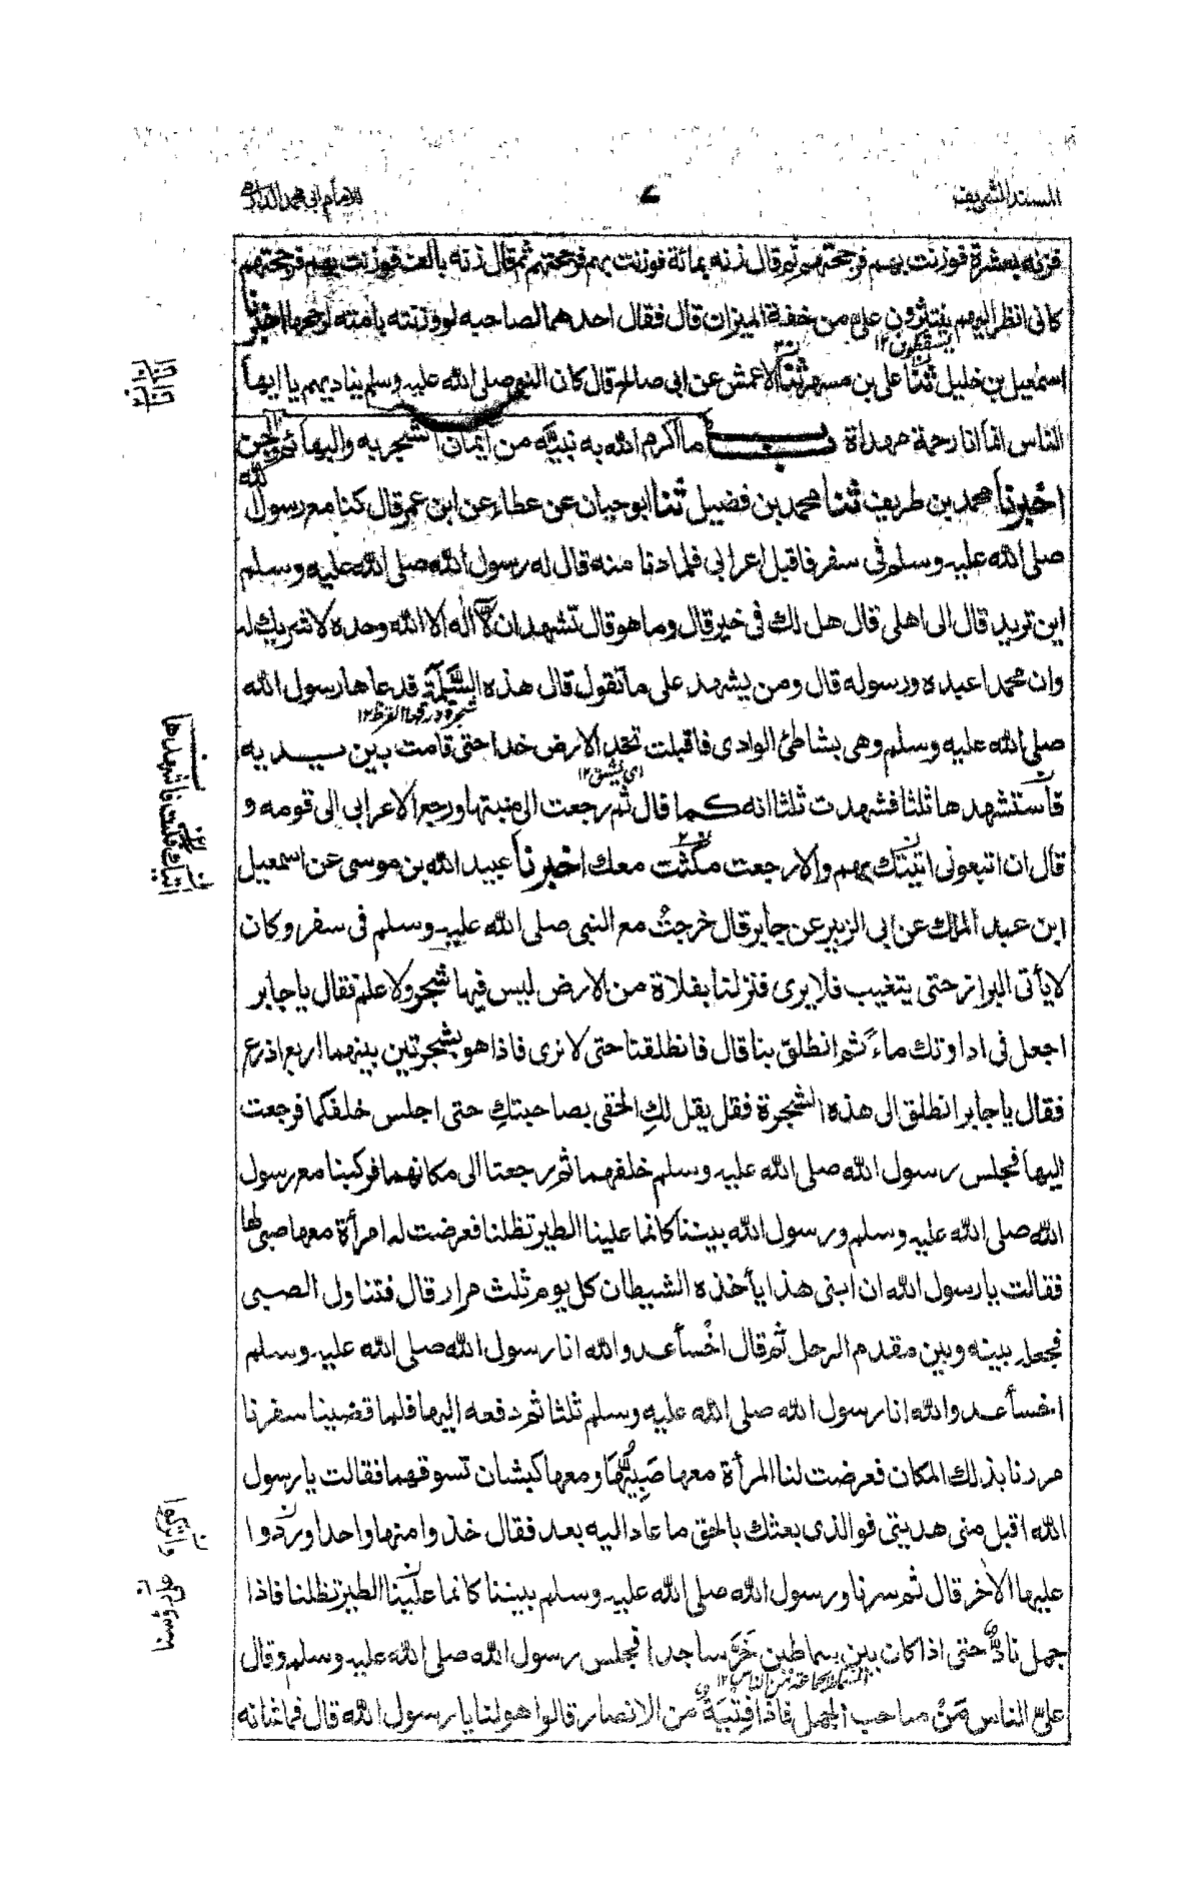 المسند الشريف
٧
للامام ابي محمد الدارمي
فزنه بعشرة فوزنت بهم فرجحتهم ثم قال زنه بمائة فوزنت بهم فرجحتهم ثم قال زنه بالف فوزنت بهم فرجحتهم
كانى انظر اليهم ينتثرون على من خفة الميزان قال فقال احدهما لصاحبه لو وزنته بامته لرجحها اخبرنا
يتسقطون ١٢
اسمعيل بن خليل ثنا على بن مسهر ثنا الاعمش عن ابى صالح قال كان النبى صلى الله عليه وسلم يناديهم يا ايها
الناس انما انا رحمة مهداة باب ما اكرم الله به نبيه من ايمان الشجر به والبهائم والجن
اخبرنا محمد بن طريف ثنا محمد بن فضيل ثنا ابو حيان عن عطاء عن ابن عمر قال كنا مع رسول الله
صلى الله عليه وسلم فى سفر فاقبل اعرابى فلما دنا منه قال له رسول الله صلى الله عليه وسلم
اين تريد قال الى اهلى قال هل لك فى خير قال وما هو قال تشهد ان لا اله الا الله وحده لا شريك له
وان محمدا عبده ورسوله قال ومن يشهد على ما تقول قال هذه السلمة فدعاها رسول الله
شجرة ورقها القرظ ١٢
صلى الله عليه وسلم وهى بشاطئ الوادى فاقبلت تخد الارض خدا حتى قامت بين يديه
اى تشق ١٢
فاستشهدها ثلثا فشهدت ثلثا انه كما قال ثم رجعت الى منبتها ورجع الاعرابى الى قومه و
قال ان اتبعونى اتيتك بهم والا رجعت مكثت معك اخبرنا عبيد الله بن موسى عن اسمعيل
ابن عبد الملك عن ابى الزبير عن جابر قال خرجت مع النبى صلى الله عليه وسلم فى سفر وكان
لا يأتى البراز حتى يتغيب فلا يرى فنزلنا بفلاة من الارض ليس فيها شجر ولا علم فقال يا جابر
اجعل فى اداوتك ماء ثم انطلق بنا قال فانطلقنا حتى لا نرى فاذا هو بشجرتين بينهما اربع اذرع
فقال يا جابر انطلق الى هذه الشجرة فقل يقل لك الحقى بصاحبتك حتى اجلس خلفكما فرجعت
اليها فجلس رسول الله صلى الله عليه وسلم خلفهما ثم رجعتا الى مكانهما فركبنا مع رسول
الله صلى الله عليه وسلم ورسول الله بيننا كانما علينا الطير تظلنا فعرضت له امرأة معها صبى لها
فقالت يا رسول الله ان ابنى هذا يأخذه الشيطان كل يوم ثلث مرار قال فتناول الصبى
فجعله بينه وبين مقدم الرحل ثم قال اخسأ عدو الله انا رسول الله صلى الله عليه وسلم
اخسأ عدو الله انا رسول الله صلى الله عليه وسلم ثلثا ثم دفعه اليها فلما قضينا سفرنا
مررنا بذلك المكان فعرضت لنا المرأة معها صبيها ومعها كبشان تسوقهما فقالت يا رسول
الله اقبل منى هديتى فوالذى بعثك بالحق ما عاد اليه بعد فقال خذوا منها واحدا وردوا
عليها الاخر قال ثم سرنا ورسول الله صلى الله عليه وسلم بيننا كانما علينا الطير تظلنا فاذا
جمل ناد حتى اذا كان بين سماطين خر ساجدا فجلس رسول الله صلى الله عليه وسلم وقال
على الناس من صاحب الجمل فاذا فتية من الانصار قالوا هو لنا يا رسول الله قال فما شانه
فاشهدها
اتيك
على رؤسنا